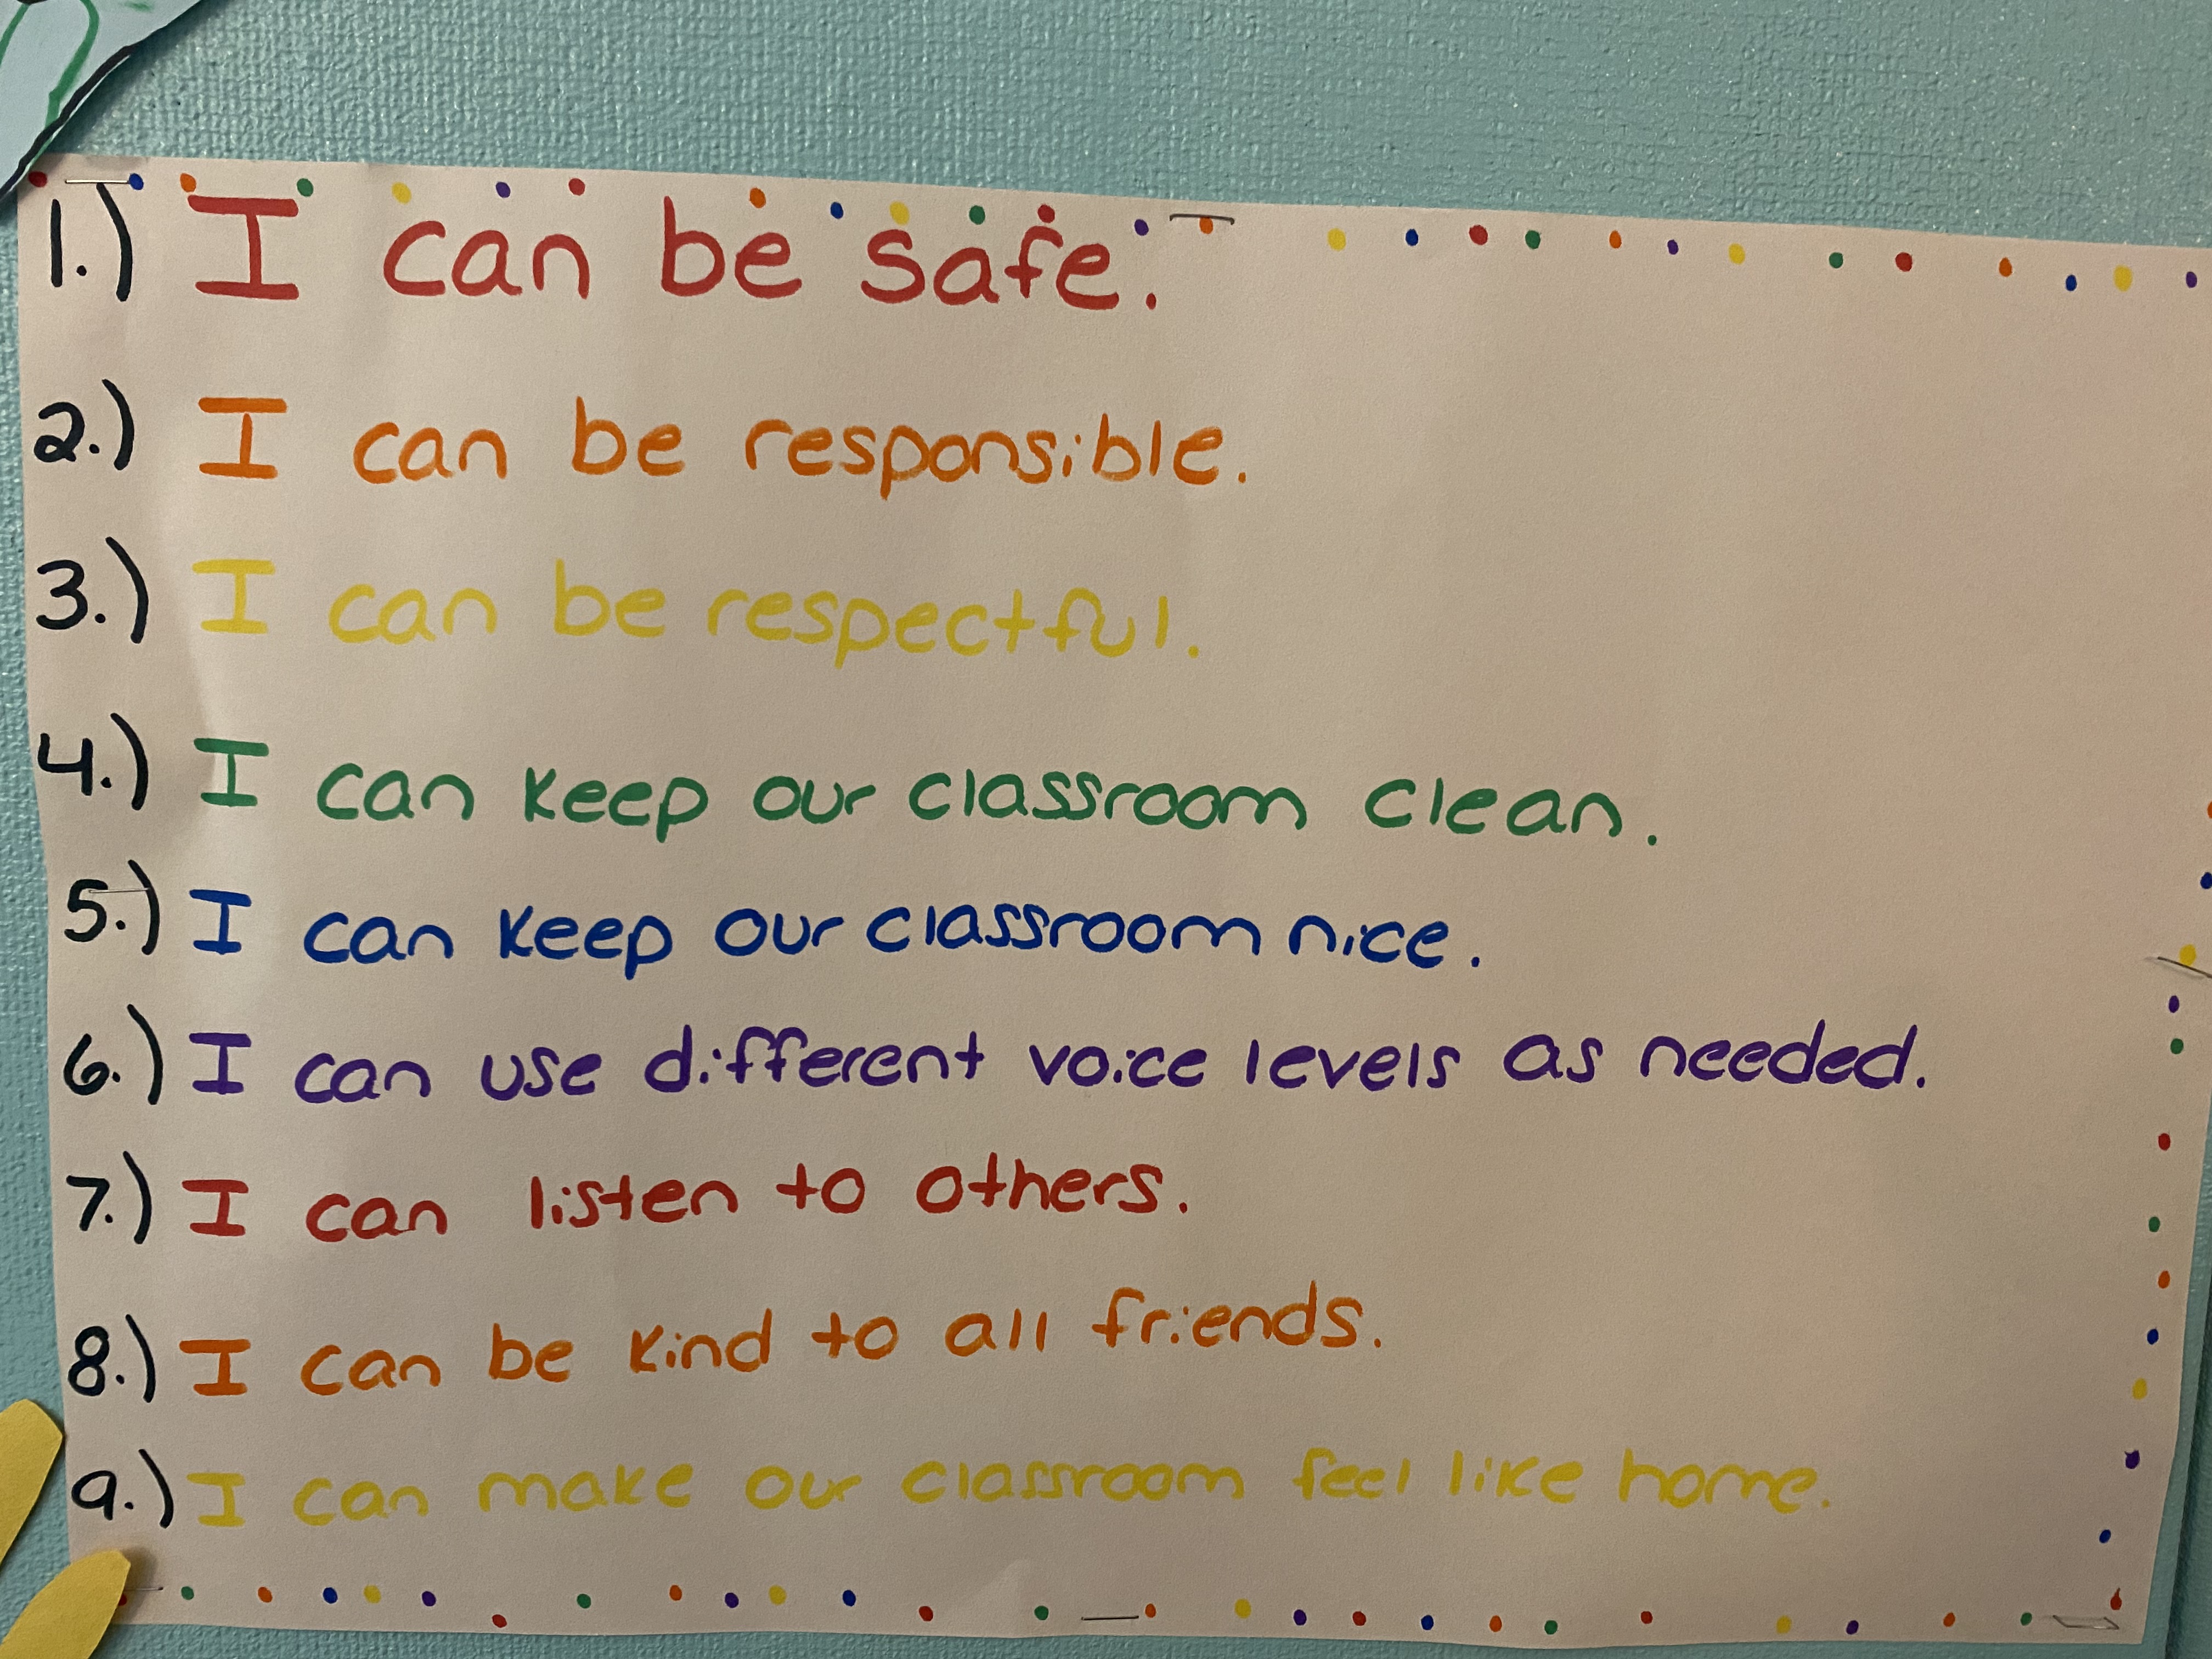 1.) I can be safe.
2.) I can be responsible.
3.) I can be respectful.
4.) I can keep our classroom clean.
5.) I can keep our classroom nice.
6.) I can use different voice levels as needed.
7.) I can listen to others.
8.) I can be kind to all friends.
9.) I can make our classroom feel like home.